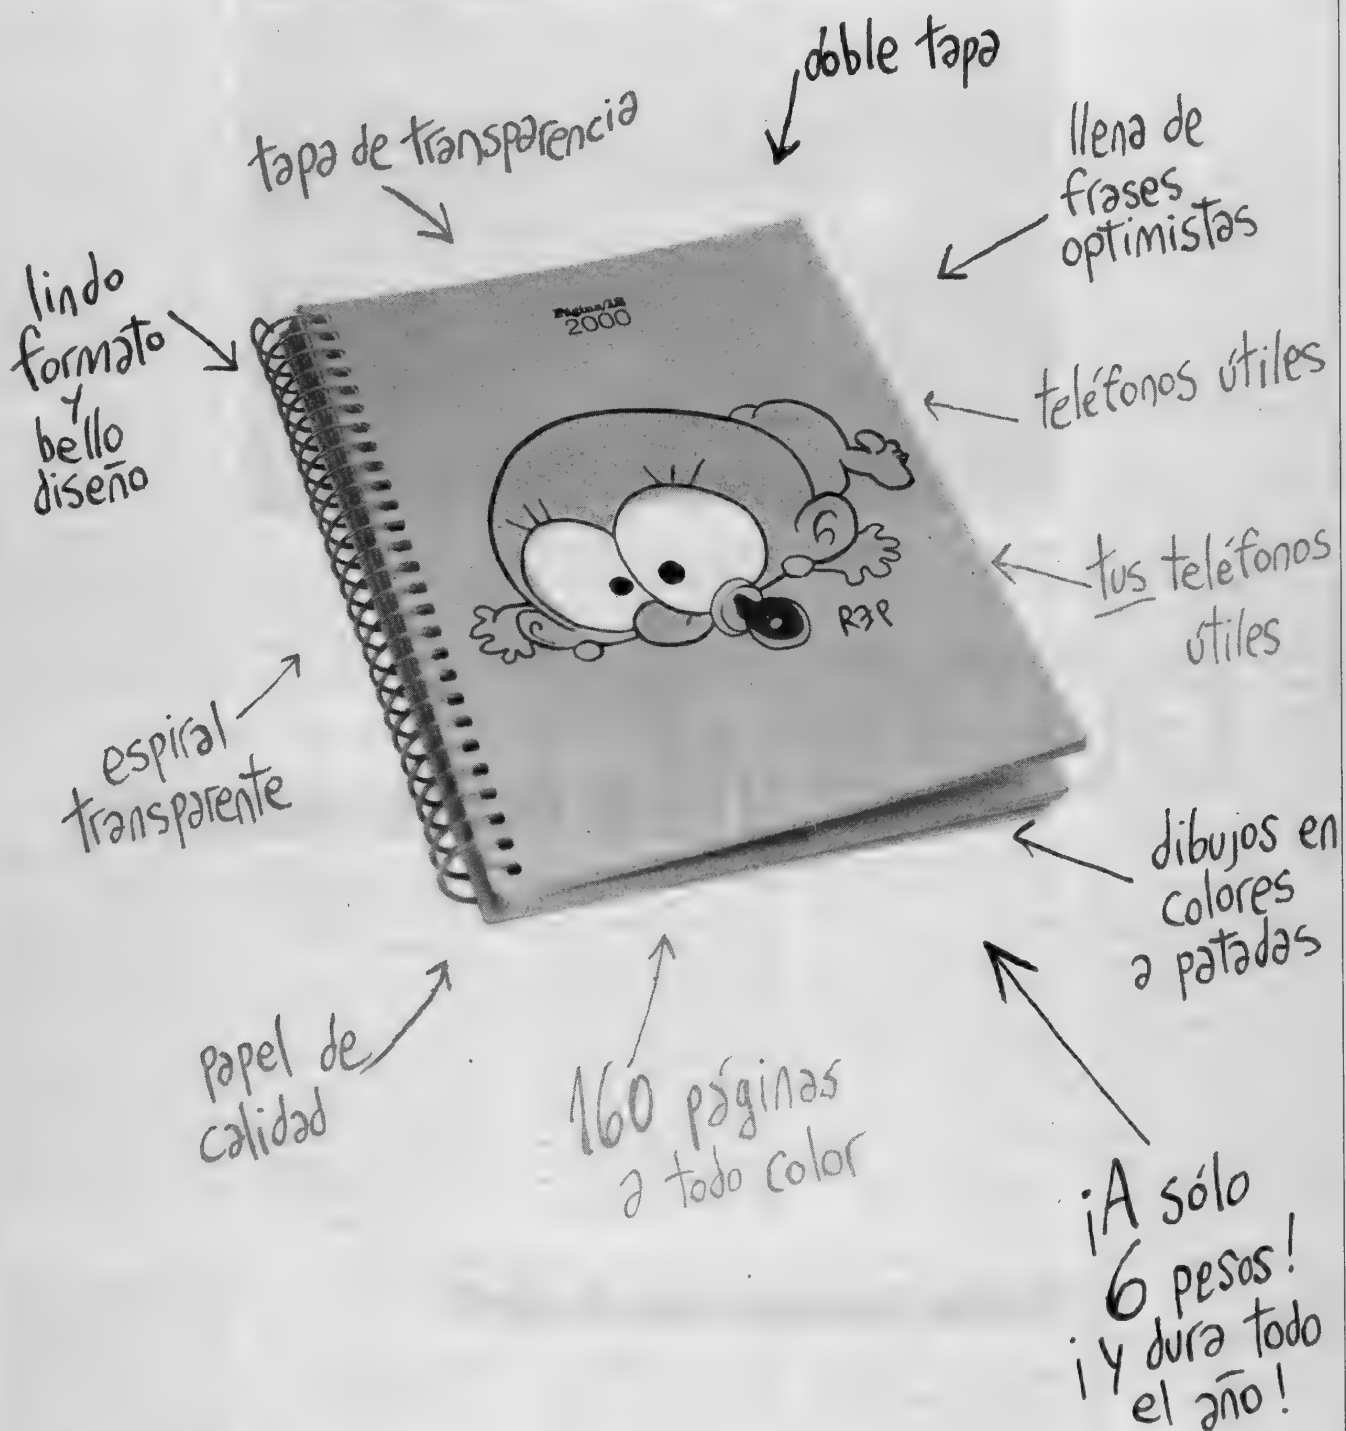 doble tapa
tapa de transparencia
llena de
frases
optimistas
lindo
formato
y
bello
diseño
Página/12
2000
teléfonos útiles
tus teléfonos
útiles
REP
espiral
transparente
dibujos en
colores
a patadas
papel de
calidad
160 páginas
a todo color
¡A sólo
6 pesos!
¡y dura todo
el año!